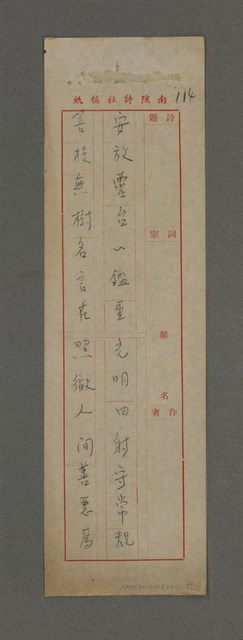 南陔詩社稿紙
114
詩題
詞宗
第 名
作者
安放靈台心鑑垂光明四射守常規
菩提無樹名言在照徹人間善惡為